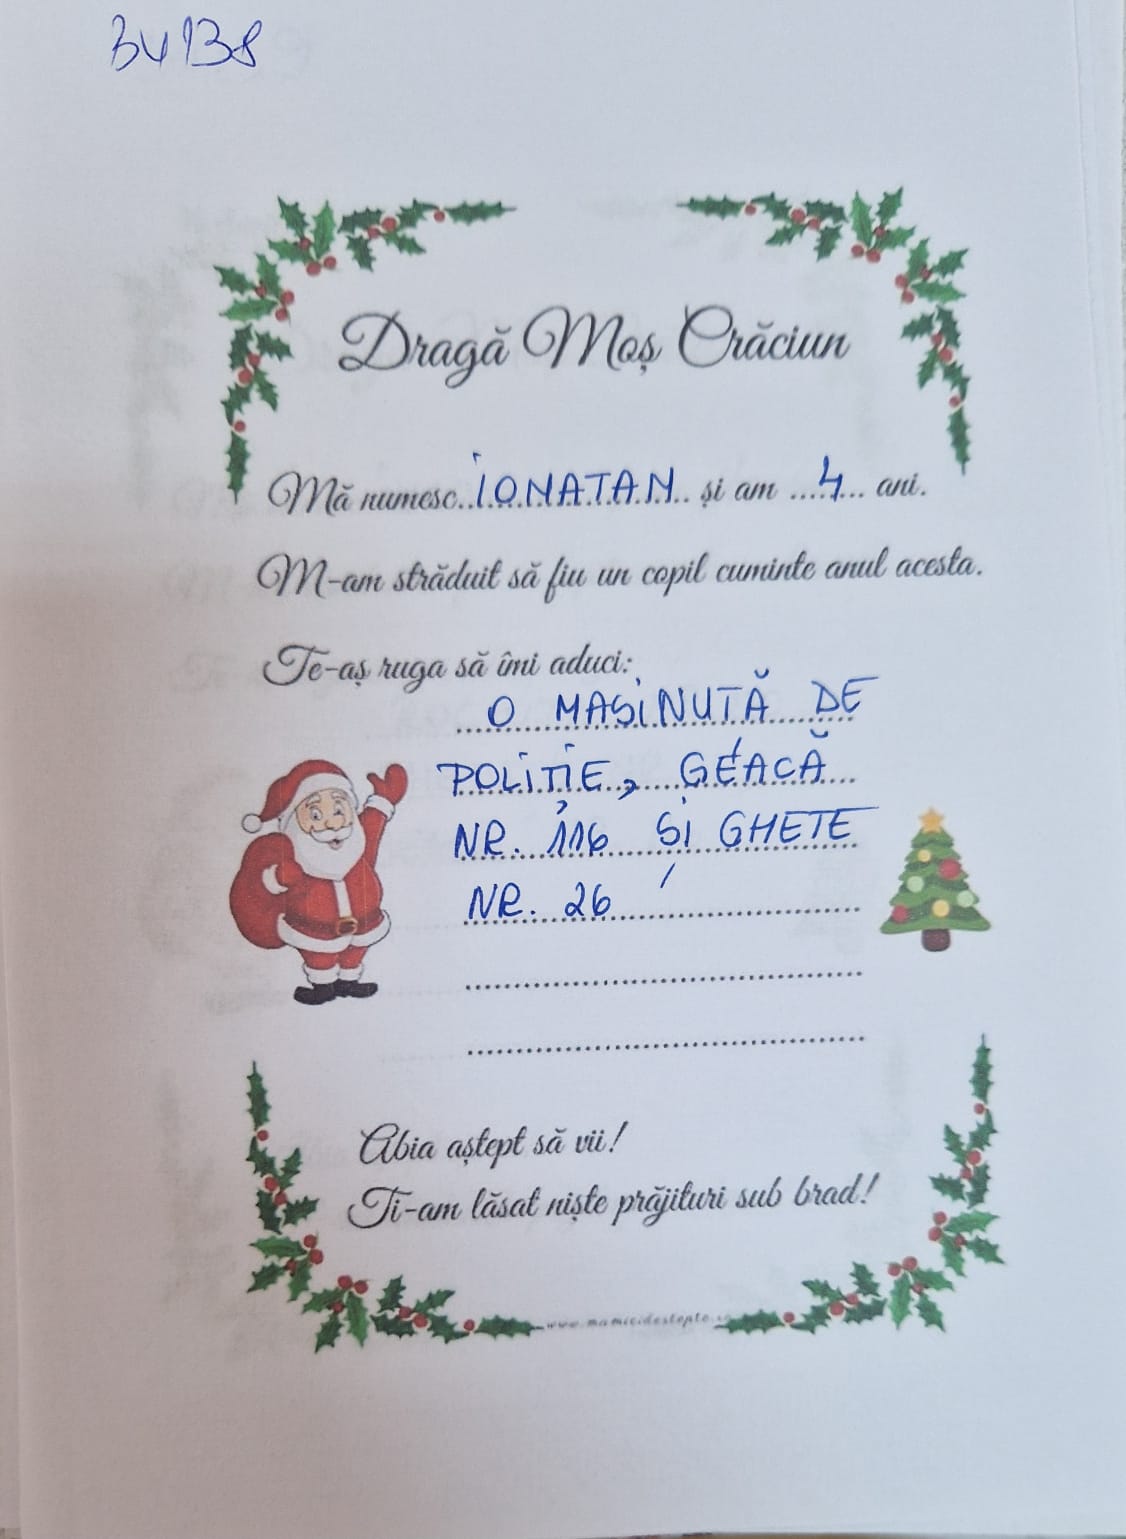 34138
Dragă Moș Crăciun
Mă numesc..IONATAN.. și am ....4.... ani.
M-am străduit să fiu un copil cuminte anul acesta.
Te-aș ruga să îmi aduci:
O MAȘINUTĂ DE
POLITIE, GEACĂ
NR. 116 ȘI GHETE
NR. 26
Abia aștept să vii!
Ți-am lăsat niște prăjituri sub brad!